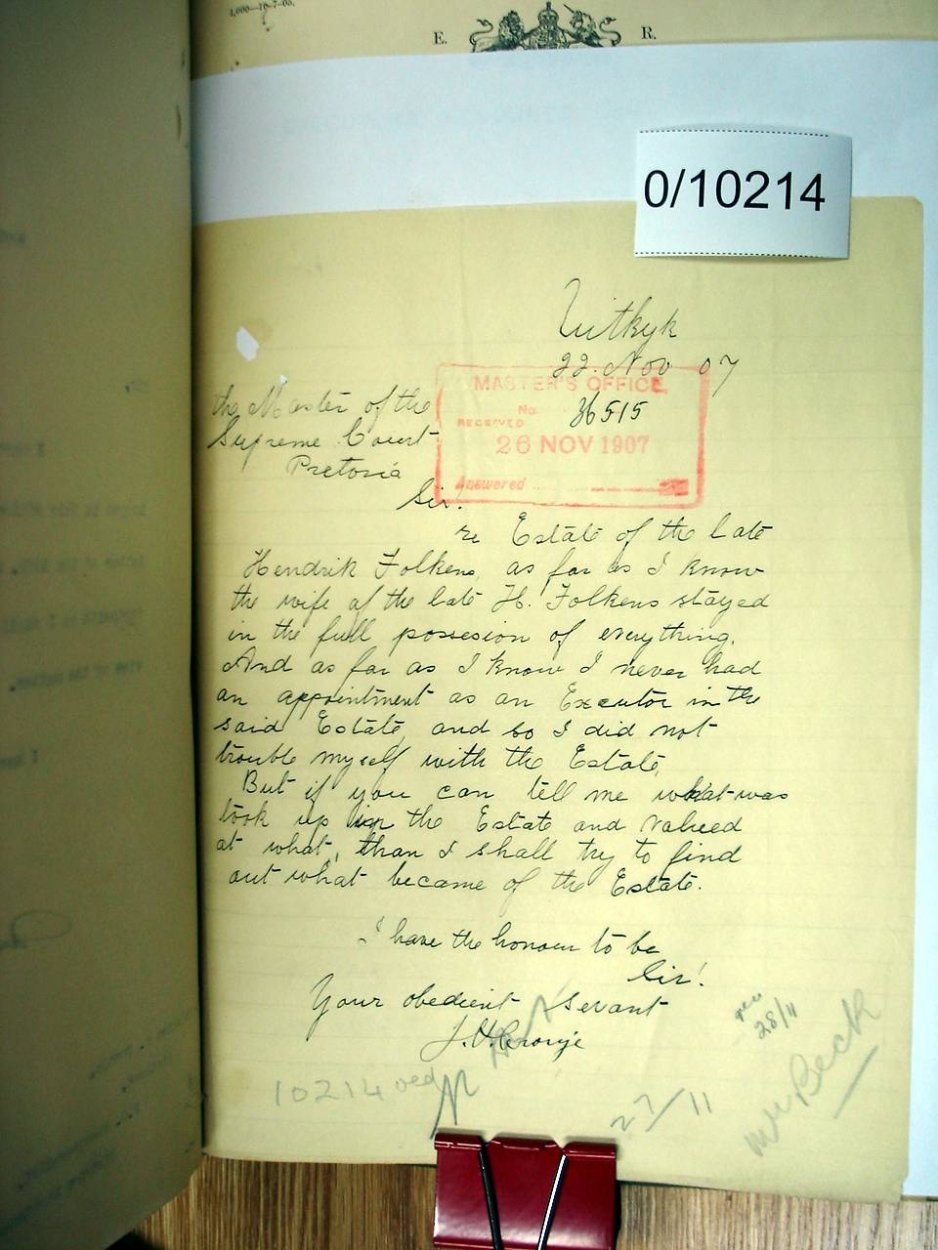 4,000—19-7-05.
E. R.
0/10214
Uitkyk
22. Nov 07
MASTER'S OFFICE
No. 36515
RECEIVED
26 NOV 1907
Answered
the Master of the
Supreme Court
Pretoria
Sir!
re Estate of the late
Hendrik Folkens, as far as I know
the wife of the late H. Folkens stayed
in the full possesion of everything.
And as far as I know I never had
an appointment as an Executor in the
said Estate, and so I did not
trouble myself with the Estate,
But if you can tell me what was
took up in the Estate and valued
at what, than I shall try to find
out what became of the Estate.
I have the honour to be
Sir!
Your obedient Servant
J. Cronje
28/11
10214
27/11
Mr Beck